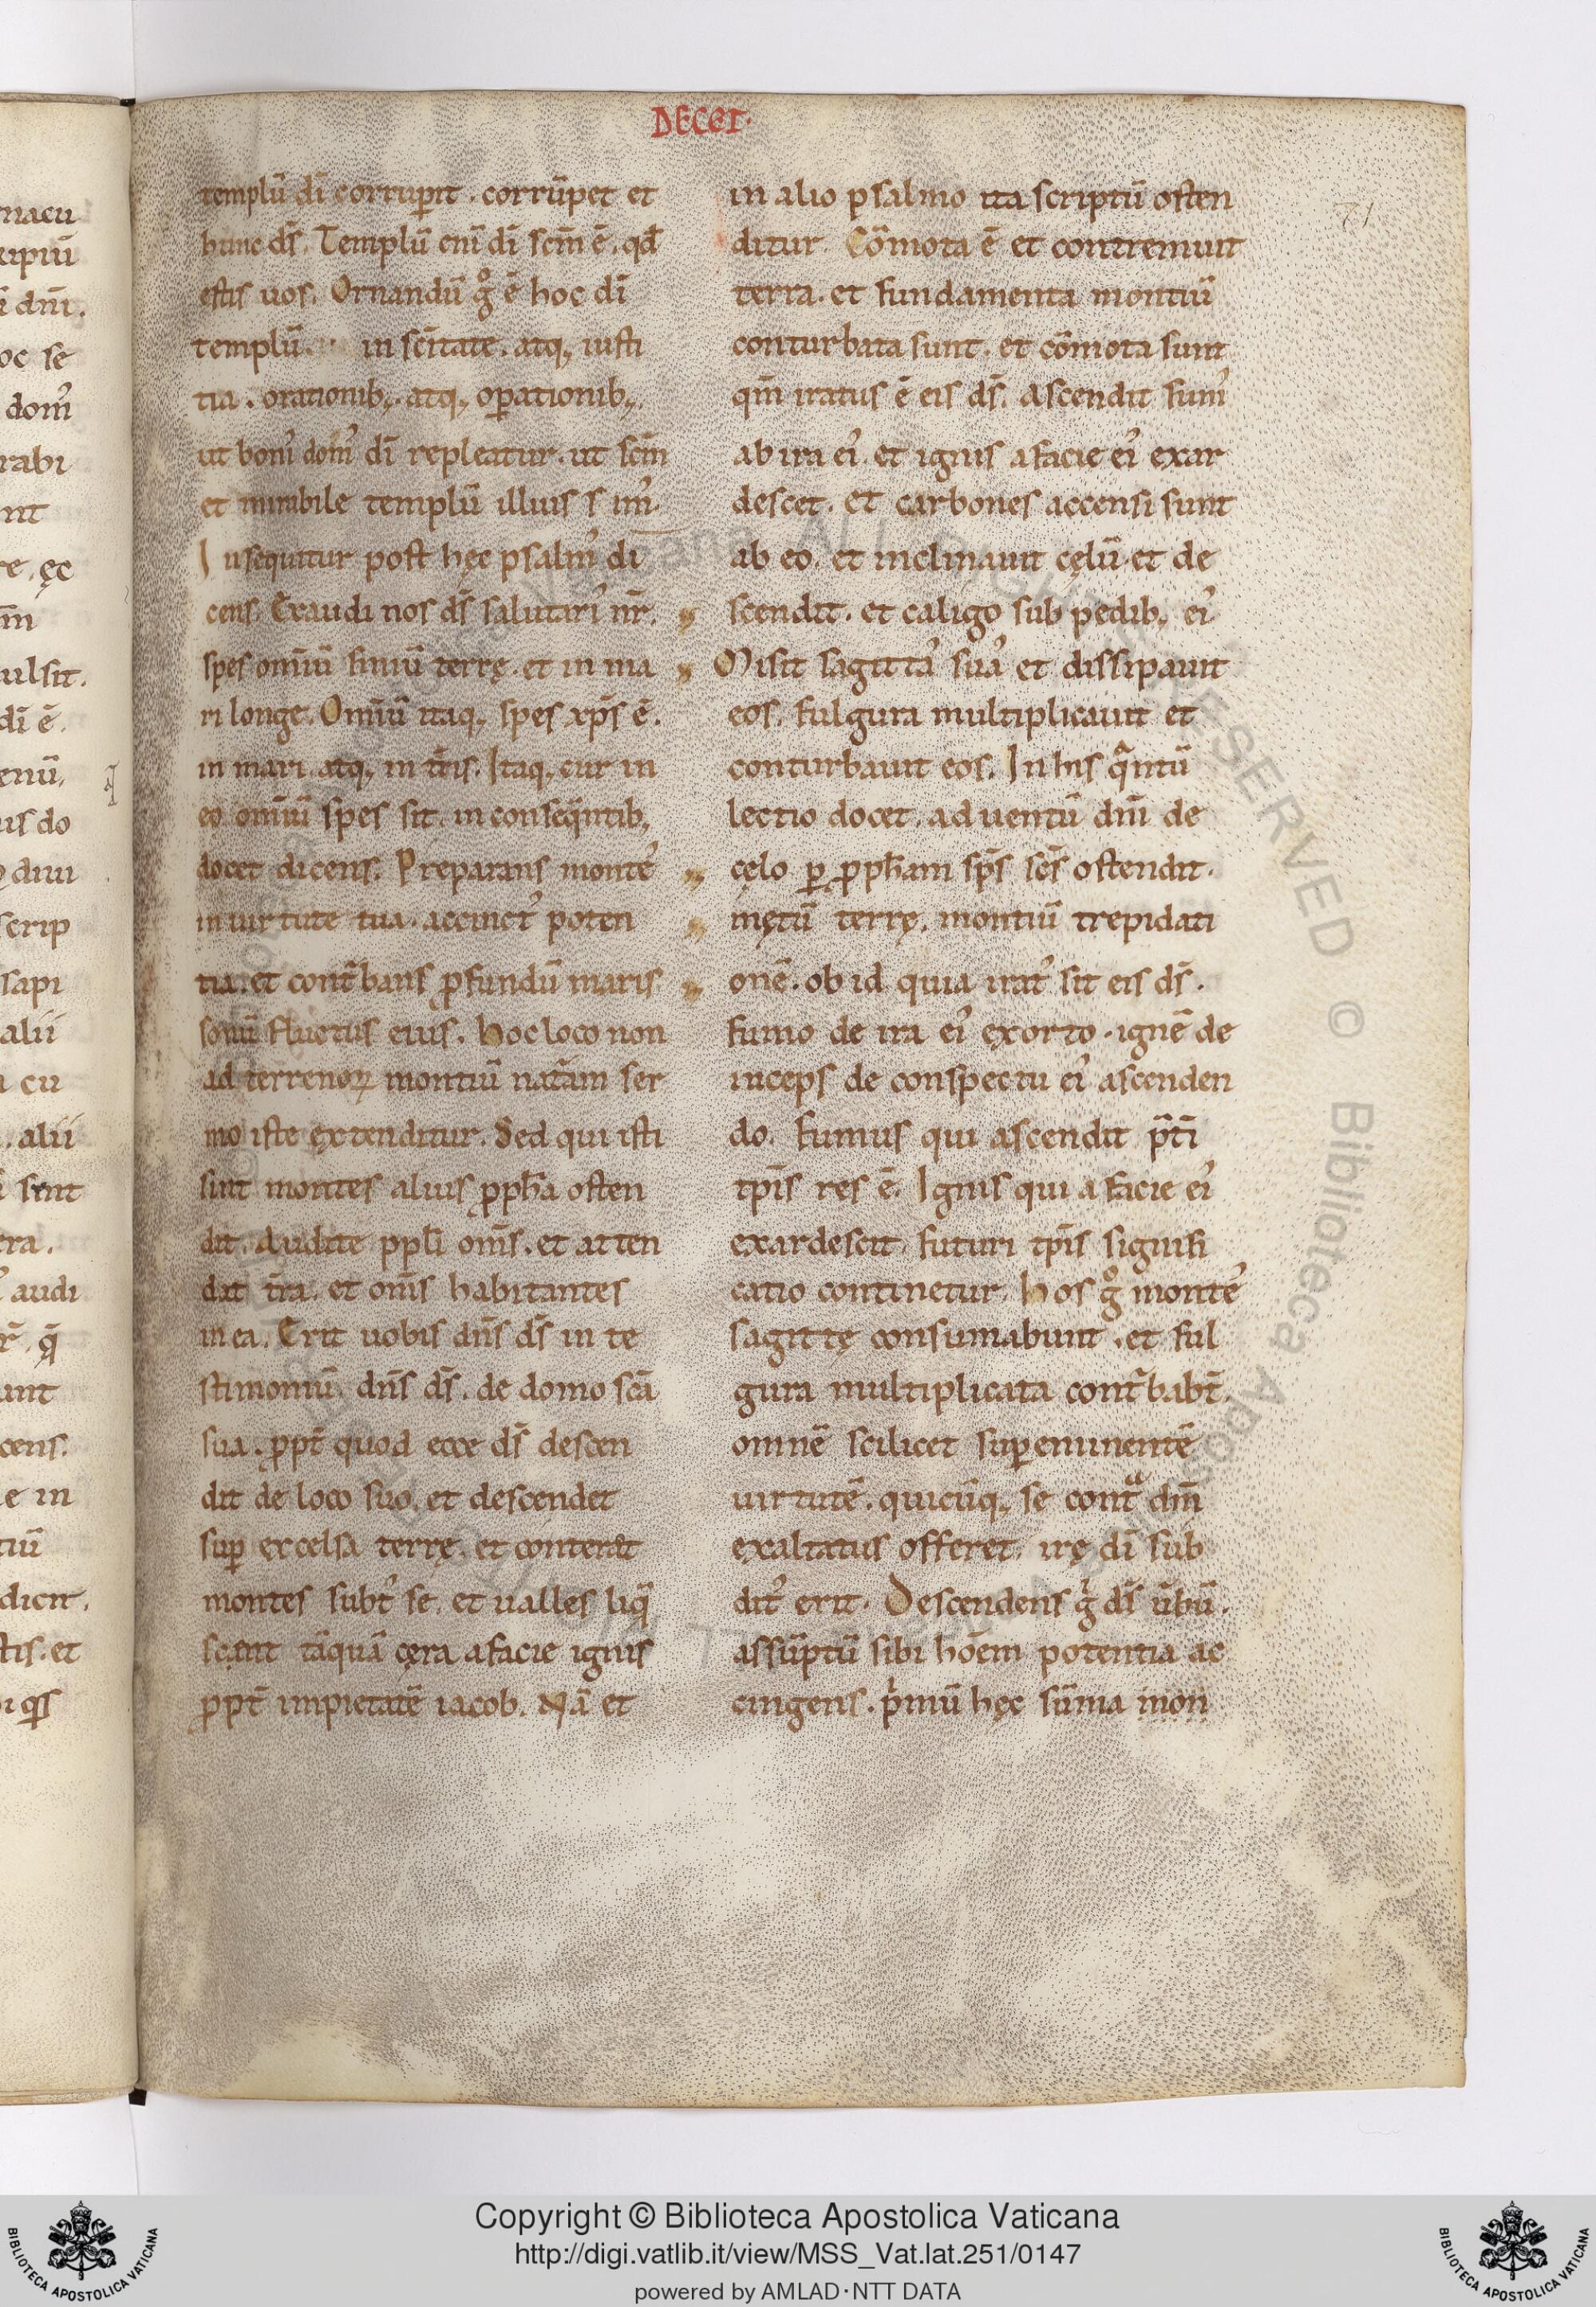 DECET.
templū dī corrup̄it . corrūpet et
hunc ds̄. Templū enī dī scm̄ ē. qd̄
estis uos. Ornandū g̊ ē hoc dī
templū. in sc̄itate. atq; iusti
tia . orationib; . atq; op̄ationib;.
ut bonis dom' dī repleatur. ut scm̄
et mirabile templū illius s im'.
Insequitur post hęc psalm' di
cens. Exaudi nos ds̄ salutari' nr̄.
spes omīū finiū terrę. et in ma
ri longe. Omīū itaq; spes xp̄s ē.
in mari atq; in tr̄is. Itaq; cur in
eo omīū spes sit. in conseq̄ntib;
docet dicens. Preparans monte'
in uirtute tua. accinct' poten
tia. et cont̄bans p̄fundū maris
sonū fluctus eius. Hoc loco non
ad terrenoꝝ montiū nat̄am ser
mo iste extenditur. Sed qui isti
sint montes alius pp̄ha osten
dit. Audite pp̄li om̄s. et atten
dat tr̄a. et om̄s habitantes
in ea. Erit uobis dn̄s ds̄ in te
stimoniū dn̄s ds̄. de domo scā
sua. pp̄t quod ecce ds̄ descen
dit de loco suo. et descendet
sup̄ excelsa terrę. et conterat
montes subt' se. et ualles liq̄
scant tāquā cęra a facie ignis
pp̄t impietatē iacob. Nā et
in alio psalmo ita scriptū osten
ditur. Cōmota ē et contremuit
terra. et fundamenta montiū
conturbata sunt. et cōmota sunt
qm̄ iratus ē eis ds̄. Ascendit fum'
ab ira ei'. et ignis a facie ei' exar
descet. et carbones accensi sunt
ab eo. et inclinauit cęlū. et de
scendit. et caligo sub pedib; ei'
Misit sagitta' sua' et dissipauit
eos. fulgura multiplicauit et
conturbauit eos. In his q̄ntū
lectio docet. aduentū dn̄i de
cęlo p̄ pp̄ham sp̄s sc̄s ostendit.
mętū terrę. montiū trepidati
onē. ob id quia irat' sit eis ds̄.
fumo de ira ei' exorto. ignē de
inceps de conspectu ei' ascenden
do. Fumus qui ascendit p̄ti
tp̄is res ē. Ignis qui a facie ei'
exardescit. futuri tp̄is signifi
catio continetur. Hos g̊ monte'
sagittę consumabunt. et ful
gura multiplicata cont̄babt̄.
omnē scilicet sup̄eminentē
uirtutē. quicūq; se contᵃ dm̄
exaltatus offeret. irę dī sub
dit' erit. Descendens g̊ ds̄ ūbū.
assūptū sibi hōem potentia ac
cingens. p̄mū hęc sūma mon
71
Copyright © Biblioteca Apostolica Vaticana
http://digi.vatlib.it/view/MSS_Vat.lat.251/0147
powered by AMLAD·NTT DATA